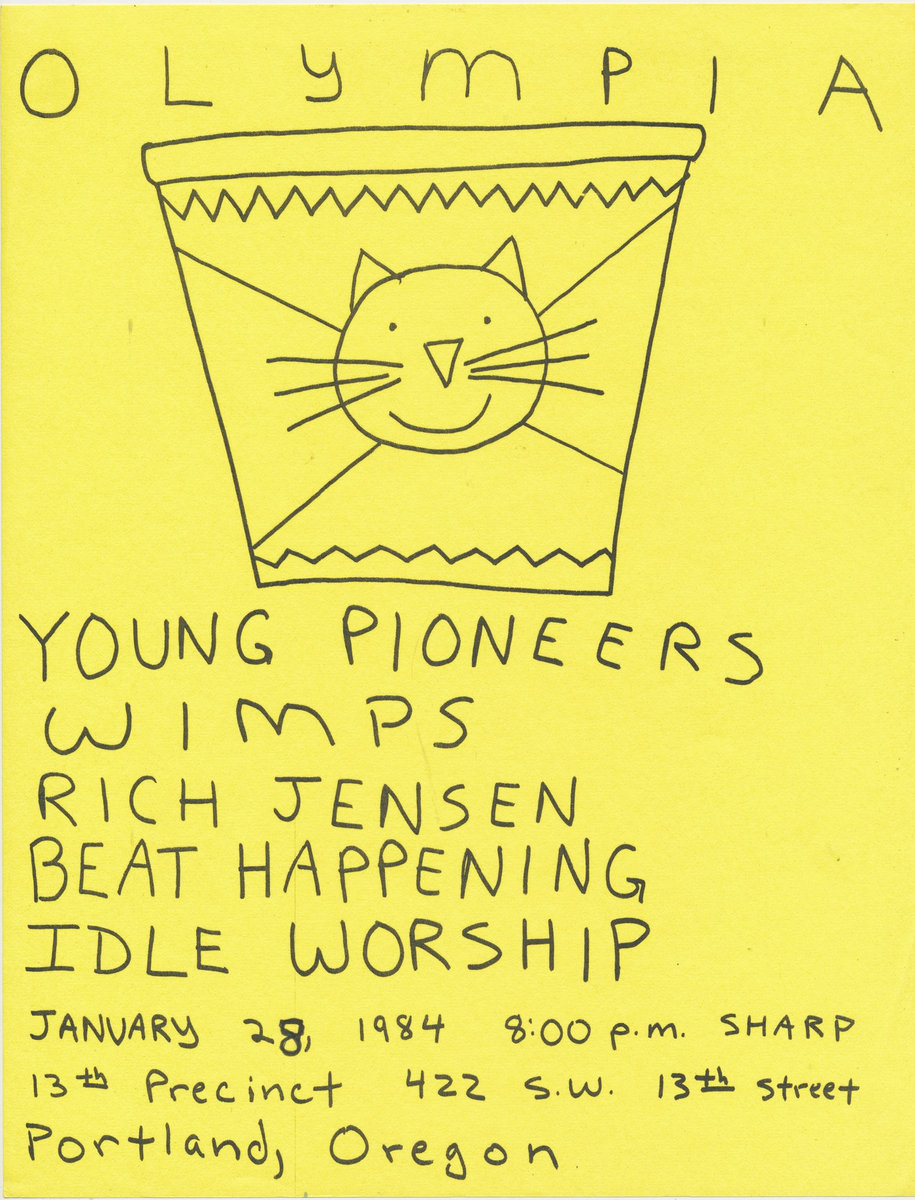 OLYMPIA
YOUNG PIONEERS
WIMPS
RICH JENSEN
BEAT HAPPENING
IDLE WORSHIP
JANUARY 28, 1984 8:00 p.m. SHARP
13th Precinct 422 S.W. 13th street
Portland, Oregon